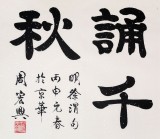 誦千
秋
明徐渭句
丙申元春
於京華
周宏興